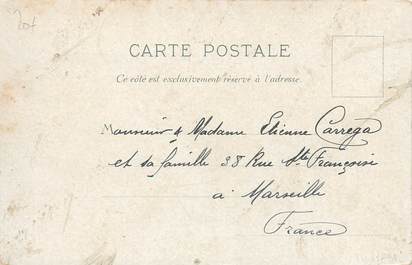 CARTE POSTALE
Ce côté est exclusivement réservé à l'adresse.
Monsieur & Madame Etienne Carrega
et sa famille 38 Rue Ste Françoise
à Marseille
France